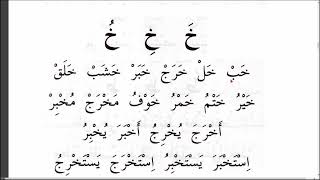 خَ خِ خُ
خَبْ خَلْ خَرَجْ خَبَرْ خَشَبْ خَلَقْ
خَيْرُ خَتْمُ خَمْرُ خَوْفُ مَخْرَجْ مُخْبِرْ
أَخْرَجَ يُخْرِجُ أَخْبَرَ يُخْبِرُ
اِسْتَخْبَرَ يَسْتَخْبِرُ اِسْتَخْرَجَ يَسْتَخْرِجُ